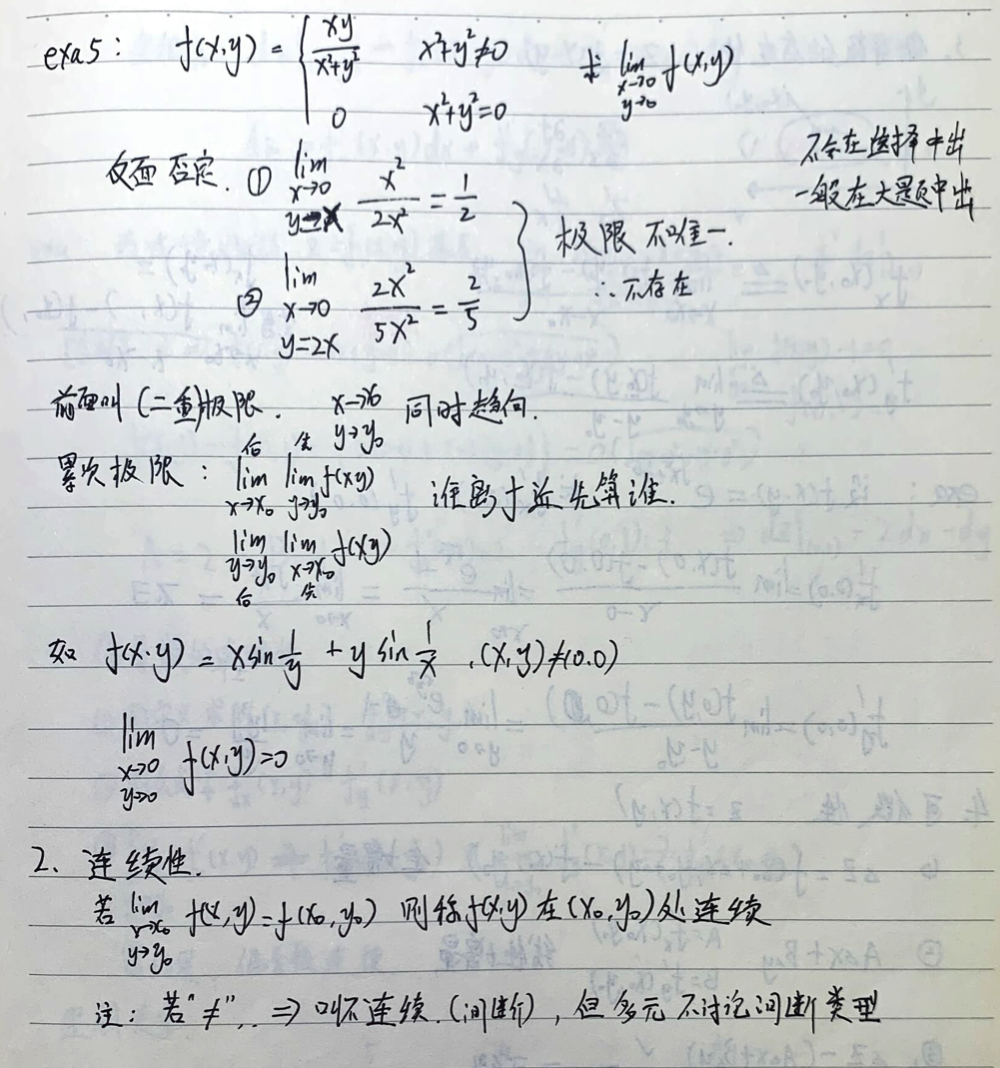 exa5: f(x,y) = { xy/(x²+y²)  x²+y²≠0  求 lim x→0 y→0 f(x,y)
0  x²+y²=0
不会在选择中出
一般在大题中出
反面否定. ① lim x→0 y→x x²/2x² = 1/2
② lim x→0 y=2x 2x²/5x² = 2/5
} 极限不唯一.
∴不存在
前面叫(二重)极限. x→x₀ y→y₀ 同时趋向.
后 先
累次极限: lim x→x₀ lim y→y₀ f(xy) 谁离f近先算谁.
lim y→y₀ lim x→x₀ f(xy)
后 先
如 f(x·y) = x sin 1/y + y sin 1/x , (x,y)≠(0.0)
lim x→0 y→0 f(x,y)=0
2. 连续性.
若 lim x→x₀ y→y₀ f(x,y)=f(x₀,y₀) 则称f(x,y)在(x₀,y₀)处连续
注: 若"≠", ⇒ 叫不连续.(间断), 但多元不讨论间断类型